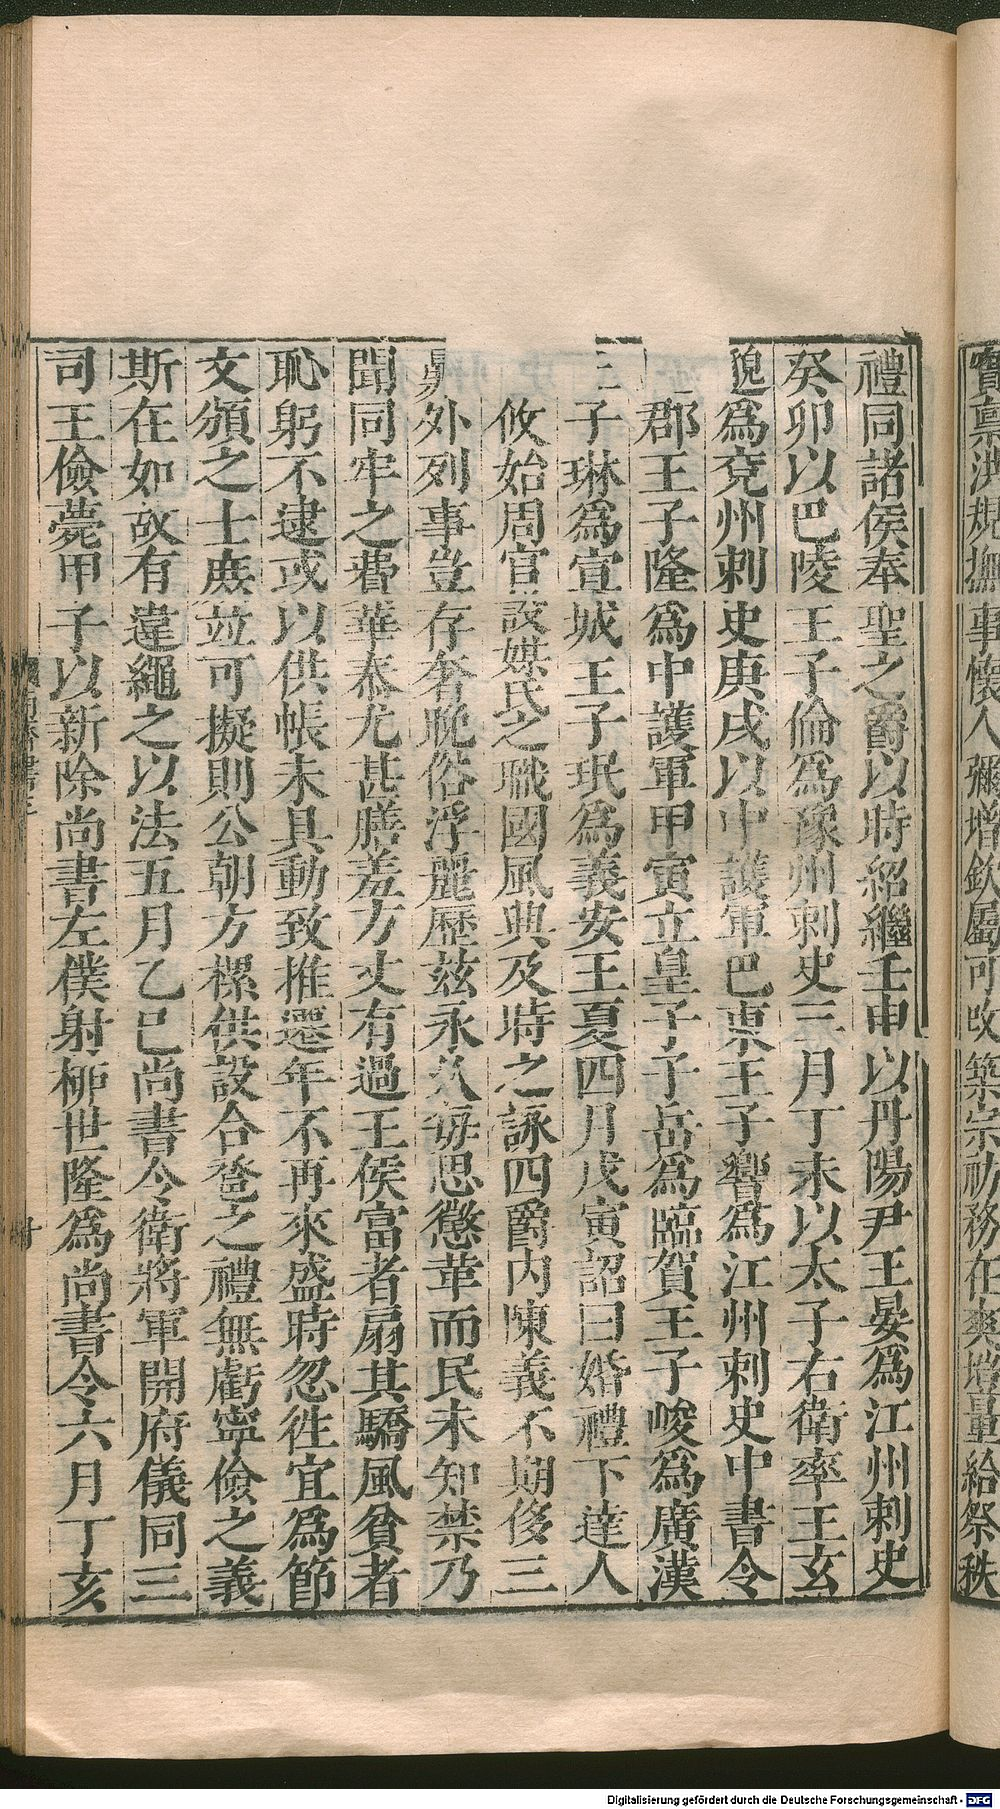 寶稟洪規撫事懷人彌增欽屬可改築宗祊務在爽塏量給祭秩
禮同諸侯奉聖之爵以時紹繼壬申以丹陽尹王晏為江州刺史
癸卯以巴陵王子倫為豫州刺史三月丁未以太子右衛率王玄
邈為兗州刺史庚戌以中護軍巴東王子響為江州刺史中書令
郡王子隆為中護軍甲寅立皇子子岳為臨賀王子峻為廣漢
王子琳為宣城王子珉為義安王夏四月戊寅詔曰婚禮下達人
攸始周官設媒氏之職國風典及時之詠四爵內陳義不期侈三
鼎外列事豈存奢晚俗浮麗歷茲永久每思懲革而民未知禁乃
聞同牢之費華泰尤甚膳羞方丈有過王侯富者扇其驕風貧者
恥躬不逮或以供帳未具動致推遷年不再來盛時忽往宜為節
文頒之士庶並可擬則公朝方樏供設合卺之禮無虧寧儉之義
斯在如故有違繩之以法五月乙巳尚書令衛將軍開府儀同三
司王儉薨甲子以新除尚書左僕射柳世隆為尚書令六月丁亥
Digitalisierung gefördert durch die Deutsche Forschungsgemeinschaft - DFG